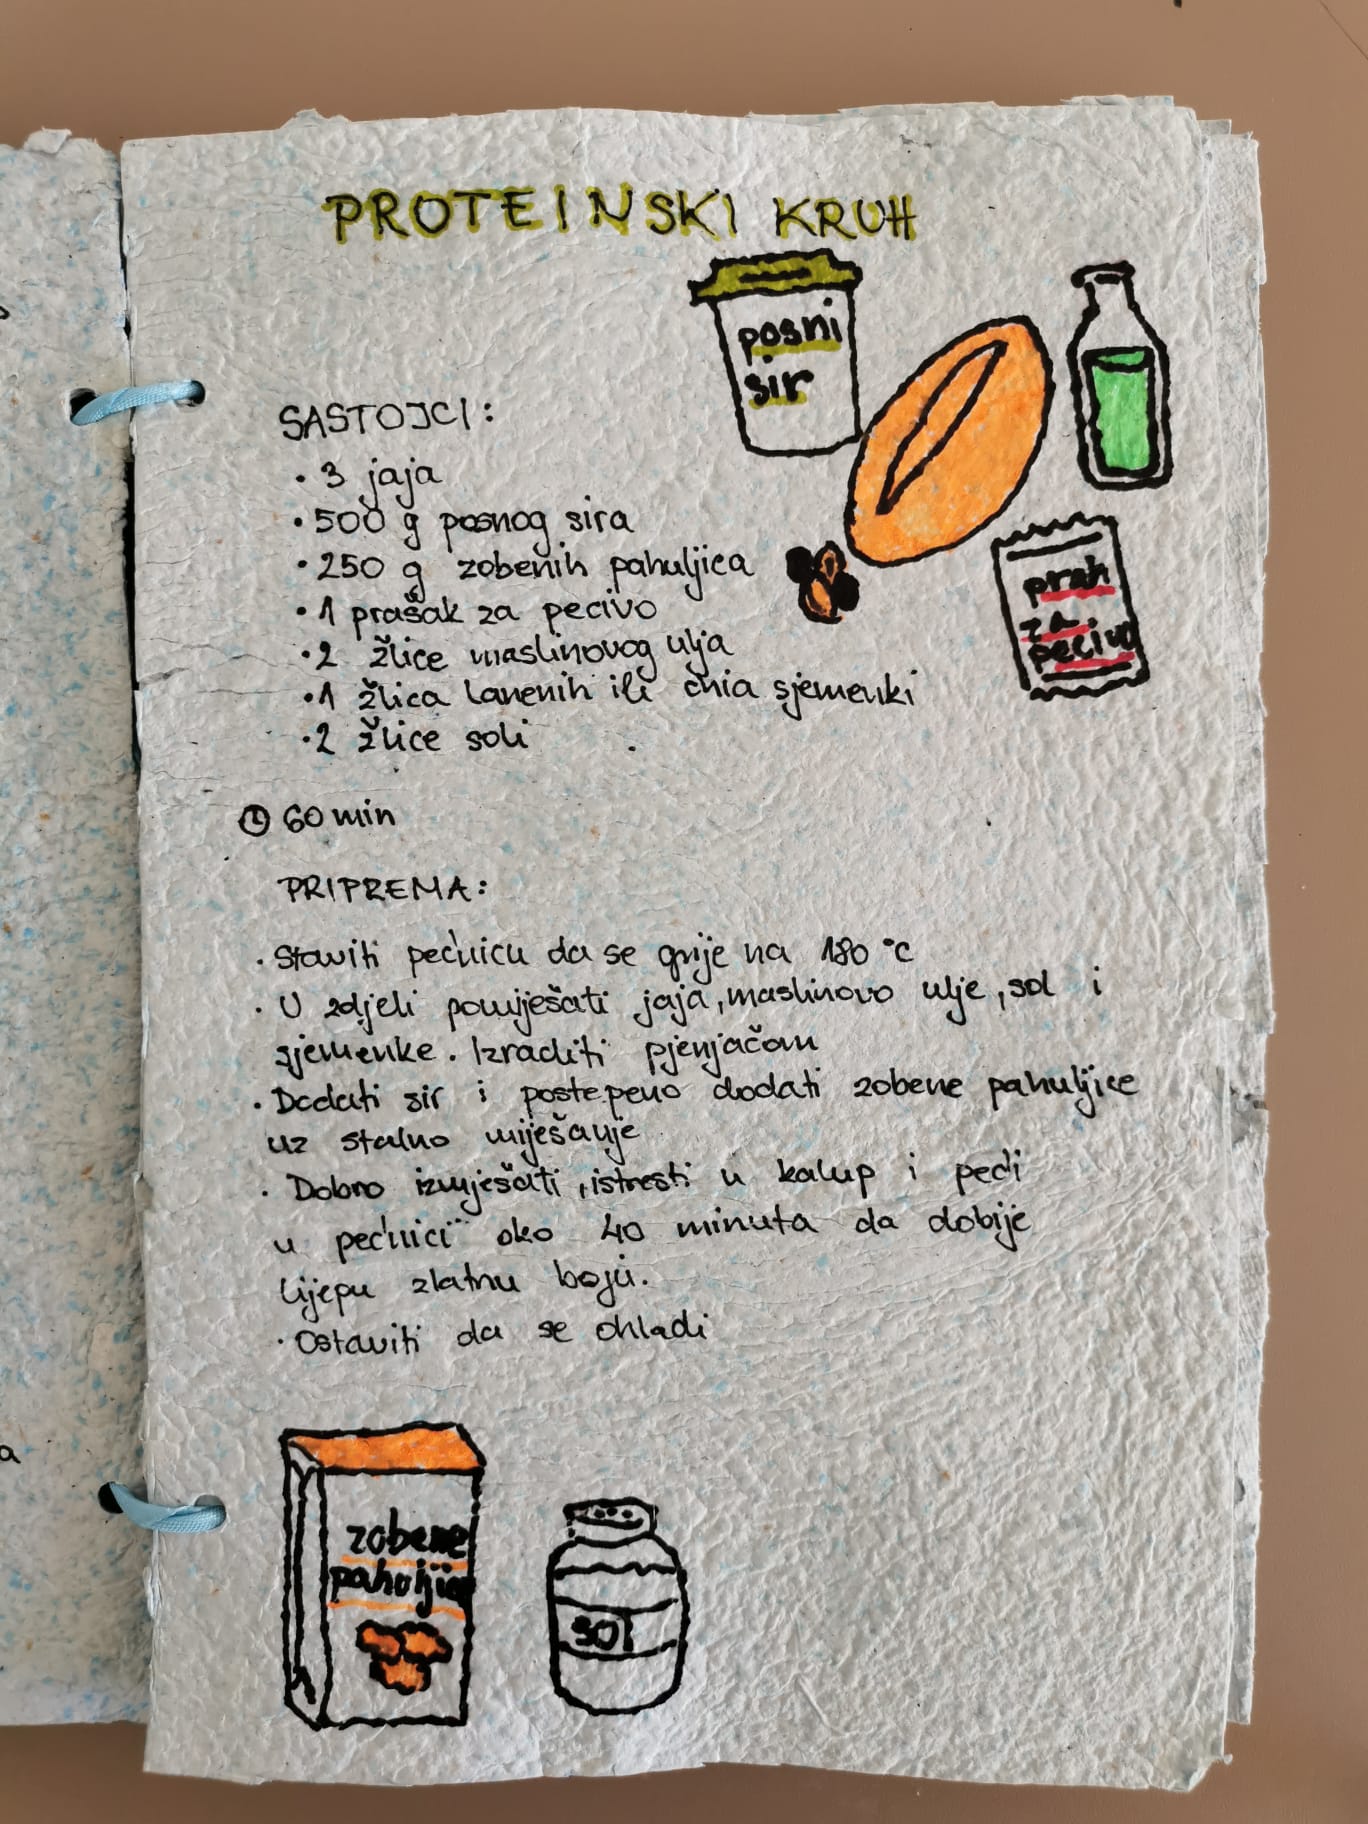 PROTEINSKI KRUH
posni
sir
SASTOJCI:
• 3 jaja
• 500 g posnog sira
• 250 g zobenih pahuljica
• 1 prašak za pecivo
• 2 žlice maslinovog ulja
• 1 žlica lanenih ili chia sjemenki
• 2 žlice soli
prah
za
pecivo
60 min
PRIPREMA:
• Staviti pećnicu da se grije na 180 °C
• U zdjeli pomiješati jaja, maslinovo ulje, sol i
sjemenke. Izraditi pjenjačom
• Dodati sir i postepeno dodati zobene pahuljice
uz stalno miješanje
• Dobro izmješati, istresti u kalup i peći
u pećnici oko 40 minuta da dobije
lijepu zlatnu boju.
• Ostaviti da se ohladi
zobene
pahuljice
SOL
a